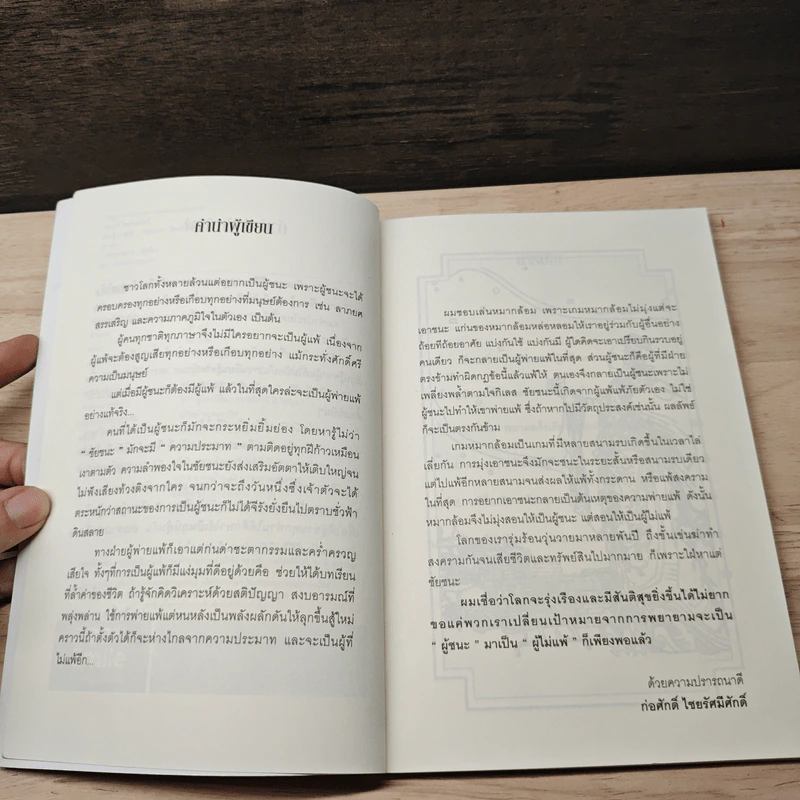 คำนำผู้เขียน
ชาวโลกทั้งหลายล้วนแต่อยากเป็นผู้ชนะ เพราะผู้ชนะจะได้
ครอบครองทุกอย่างหรือเกือบทุกอย่างที่มนุษย์ต้องการ เช่น ลาภยศ
สรรเสริญ และความภาคภูมิใจในตัวเอง เป็นต้น
ผู้คนทุกชาติทุกภาษาจึงไม่มีใครอยากจะเป็นผู้แพ้ เนื่องจาก
ผู้แพ้จะต้องสูญเสียทุกอย่างหรือเกือบทุกอย่าง แม้กระทั่งศักดิ์ศรี
ความเป็นมนุษย์
แต่เมื่อมีผู้ชนะก็ต้องมีผู้แพ้ แล้วในที่สุดใครล่ะจะเป็นผู้พ่ายแพ้
อย่างแท้จริง...
คนที่ได้เป็นผู้ชนะก็มักจะกระหยิ่มยิ้มย่อง โดยหารู้ไม่ว่า
“ ชัยชนะ ” มักจะมี “ ความประมาท ” ตามติดอยู่ทุกฝีก้าวเหมือน
เงาตามตัว ความลำพองใจในชัยชนะยังส่งเสริมอัตตาให้เติบใหญ่จน
ไม่ฟังเสียงท้วงติงจากใคร จนกว่าจะถึงวันหนึ่งซึ่งเจ้าตัวจะได้
ตระหนักว่าสถานะของการเป็นผู้ชนะก็ไม่ได้จีรังยั่งยืนไปตราบชั่วฟ้า
ดินสลาย
ทางฝ่ายผู้พ่ายแพ้ก็เอาแต่ก่นด่าชะตากรรมและคร่ำครวญ
เสียใจ ทั้งๆที่การเป็นผู้แพ้ก็มีแง่มุมที่ดีอยู่ด้วยคือ ช่วยให้ได้บทเรียน
ที่ล้ำค่าของชีวิต ถ้ารู้จักคิดวิเคราะห์ด้วยสติปัญญา สงบอารมณ์ที่
พลุ่งพล่าน ใช้การพ่ายแพ้แต่หนหลังเป็นพลังผลักดันให้ลุกขึ้นสู้ใหม่
คราวนี้ถ้าตั้งตัวได้ก็จะห่างไกลจากความประมาท และจะเป็นผู้ที่
ไม่แพ้อีก...
ผมชอบเล่นหมากล้อม เพราะเกมหมากล้อมไม่มุ่งแต่จะ
เอาชนะ แก่นของหมากล้อมหล่อหลอมให้เราอยู่ร่วมกับผู้อื่นอย่าง
ถ้อยทีถ้อยอาศัย แบ่งกันใช้ แบ่งกันมี ผู้ใดคิดจะเอาเปรียบกินรวบอยู่
คนเดียว ก็จะกลายเป็นผู้พ่ายแพ้ในที่สุด ส่วนผู้ชนะก็คือผู้ที่มีฝ่าย
ตรงข้ามทำผิดกฎข้อนี้แล้วแพ้ให้ ตนเองจึงกลายเป็นผู้ชนะเพราะไม่
เพลี่ยงพล้ำตามใจกิเลส ชัยชนะนี้เกิดจากผู้แพ้แพ้ภัยตัวเอง ไม่ใช่
ผู้ชนะไปทำให้เขาพ่ายแพ้ ซึ่งถ้าหากไปมีวัตถุประสงค์เช่นนั้น ผลลัพธ์
ก็จะเป็นตรงกันข้าม
เกมหมากล้อมเป็นเกมที่มีหลายสนามรบเกิดขึ้นในเวลาไล่
เลี่ยกัน การมุ่งเอาชนะจึงมักจะชนะในระยะสั้นหรือสนามรบเดียว
แต่ไปแพ้อีกหลายสนามจนส่งผลให้แพ้ทั้งกระดาน หรือแพ้สงคราม
ในที่สุด การอยากเอาชนะกลายเป็นต้นเหตุของความพ่ายแพ้ ดังนั้น
หมากล้อมจึงไม่มุ่งสอนให้เป็นผู้ชนะ แต่สอนให้เป็นผู้ไม่แพ้
โลกของเรารุ่มร้อนวุ่นวายมาหลายพันปี ถึงขั้นเข่นฆ่าทำ
สงครามกันจนเสียชีวิตและทรัพย์สินไปมากมาย ก็เพราะใฝ่หาแต่
ชัยชนะ
ผมเชื่อว่าโลกจะรุ่งเรืองและมีสันติสุขยิ่งขึ้นได้ไม่ยาก
ขอแค่พวกเราเปลี่ยนเป้าหมายจากการพยายามจะเป็น
“ ผู้ชนะ ” มาเป็น “ ผู้ไม่แพ้ ” ก็เพียงพอแล้ว
ด้วยความปรารถนาดี
ก่อศักดิ์ ไชยรัศมีศักดิ์